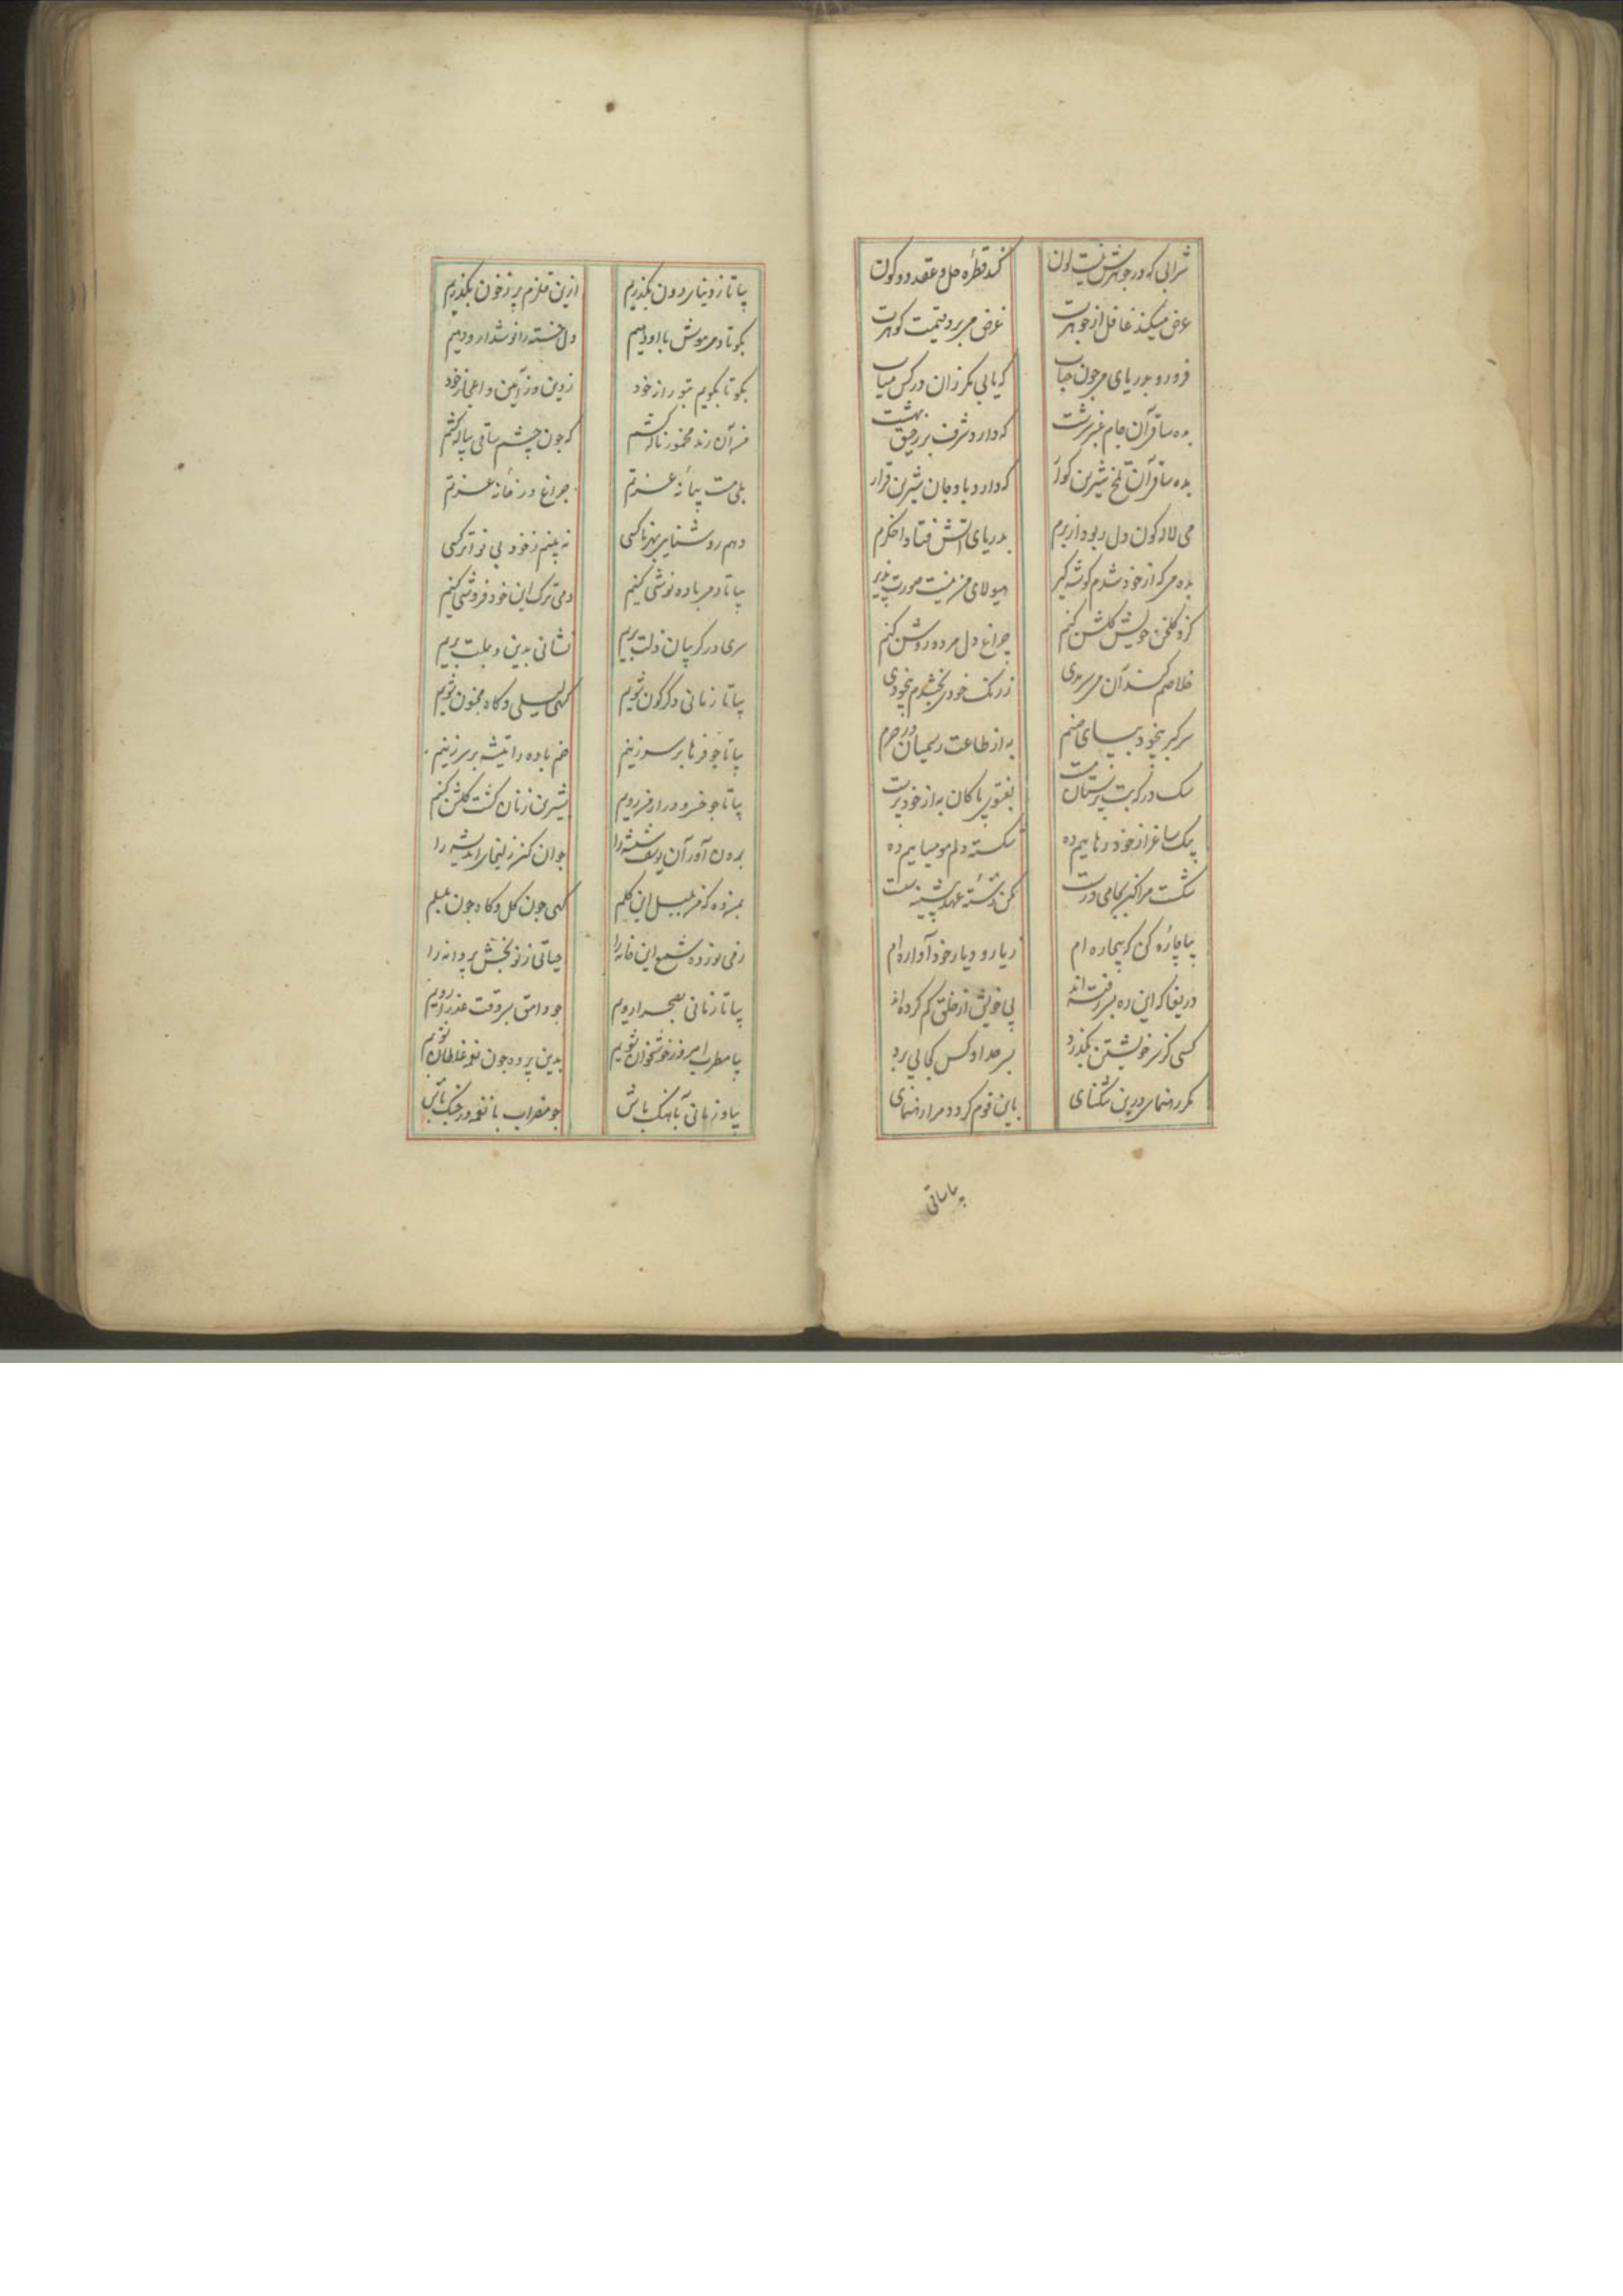 شرابی که در جوهرش نیست لون کند قطره حل و عقد دو کون
عرض میکند غافل از جوهرت غرض میبرد قیمت گوهرت
فرو رو بدریای می چون حباب که یابی مگر زان در کس میاب
بده ساقی آن جام عنبر سرشت که دارد شرف بر رحیق بهشت
بده ساقی آن تلخ شیرین گوار که دارد باو جان شیرین قرار
می لاله کون دل ربود از برم بدریای آتش فتاد اخگرم
بده می که از خود شدم گوشه گیر هیولای من نیست صورت پذیر
کزو گلخن خویش گلشن کنم چراغ دل مرده روشن کنم
خلاصم کند آن می سرمدی ز رنگ خودی بخشدم بیخودی
سر گبر بیخود بپای صنم به از طاعت رسمیان در حرم
سک درکه بت پرستان مست بفتوی پاکان به از خود پرست
بیک ساغر از خود رهاییم ده شکسته دلم مومیاییم ده
شکست مرا کن بجامی درست
بیا چاره کن که بیچاره ام ز یار و دیار خود آواره ام
دریغا که این ره بسر رفته اند پی خویش از خلق کم کرده اند
کسی کز سر خویشتن بگذرد بسر حد او کس کجا پی برد
مگر رهنمای درین تنگنای باین قوم گردد مرا رهنمای
بیا ساقی
بیا تا ز دنیای دون بگذریم ازین قلزم پر ز خون بگذریم
بگو تا دمی هوش با او دهیم دل خسته را نوشدارو دهیم
بگو تا بگویم بتو راز خود ز دین و ز آیین و اعجاز خود
من آن رند مخمور ناله کشم که چون چشم ساقی پیاله کشم
بلی مست پیمانه عزتم چراغ در خانه عزتم
دهم روشنایی بهر ناکسی نه بینم ز خود بی نواتر کسی
بیا تا دمی باده نوشی کنیم دمی ترک این خود فروشی کنیم
سری در گریبان ذلت بریم نشانی بدین و بملت بریم
بیا تا زمانی دگرگون شویم گهی لیلی و گاه مجنون شویم
بیا تا چو فرهاد بر سر زنیم خم باده را تیشه بر سر زنیم
بیا تا چو خسرو در ارمن رویم
برون آور آن یوسف شیشه را جوان کن زلیخای اندیشه را
بمن ده که من بلبل این گلم گهی چون گل و گاه چون بلبلم
ز می نور ده شمع این خانه را حیاتی ز نو بخش پروانه را
بیا تا زمانی بصحرا رویم چو وامق بسر وقت عذرا رویم
بیا مطرب امروز خوشخوان شویم بدین پرده چون نغمه غلطان شویم
بیا و زمانی بآهنگ باش چو مضراب با نغمه در جنگ باش